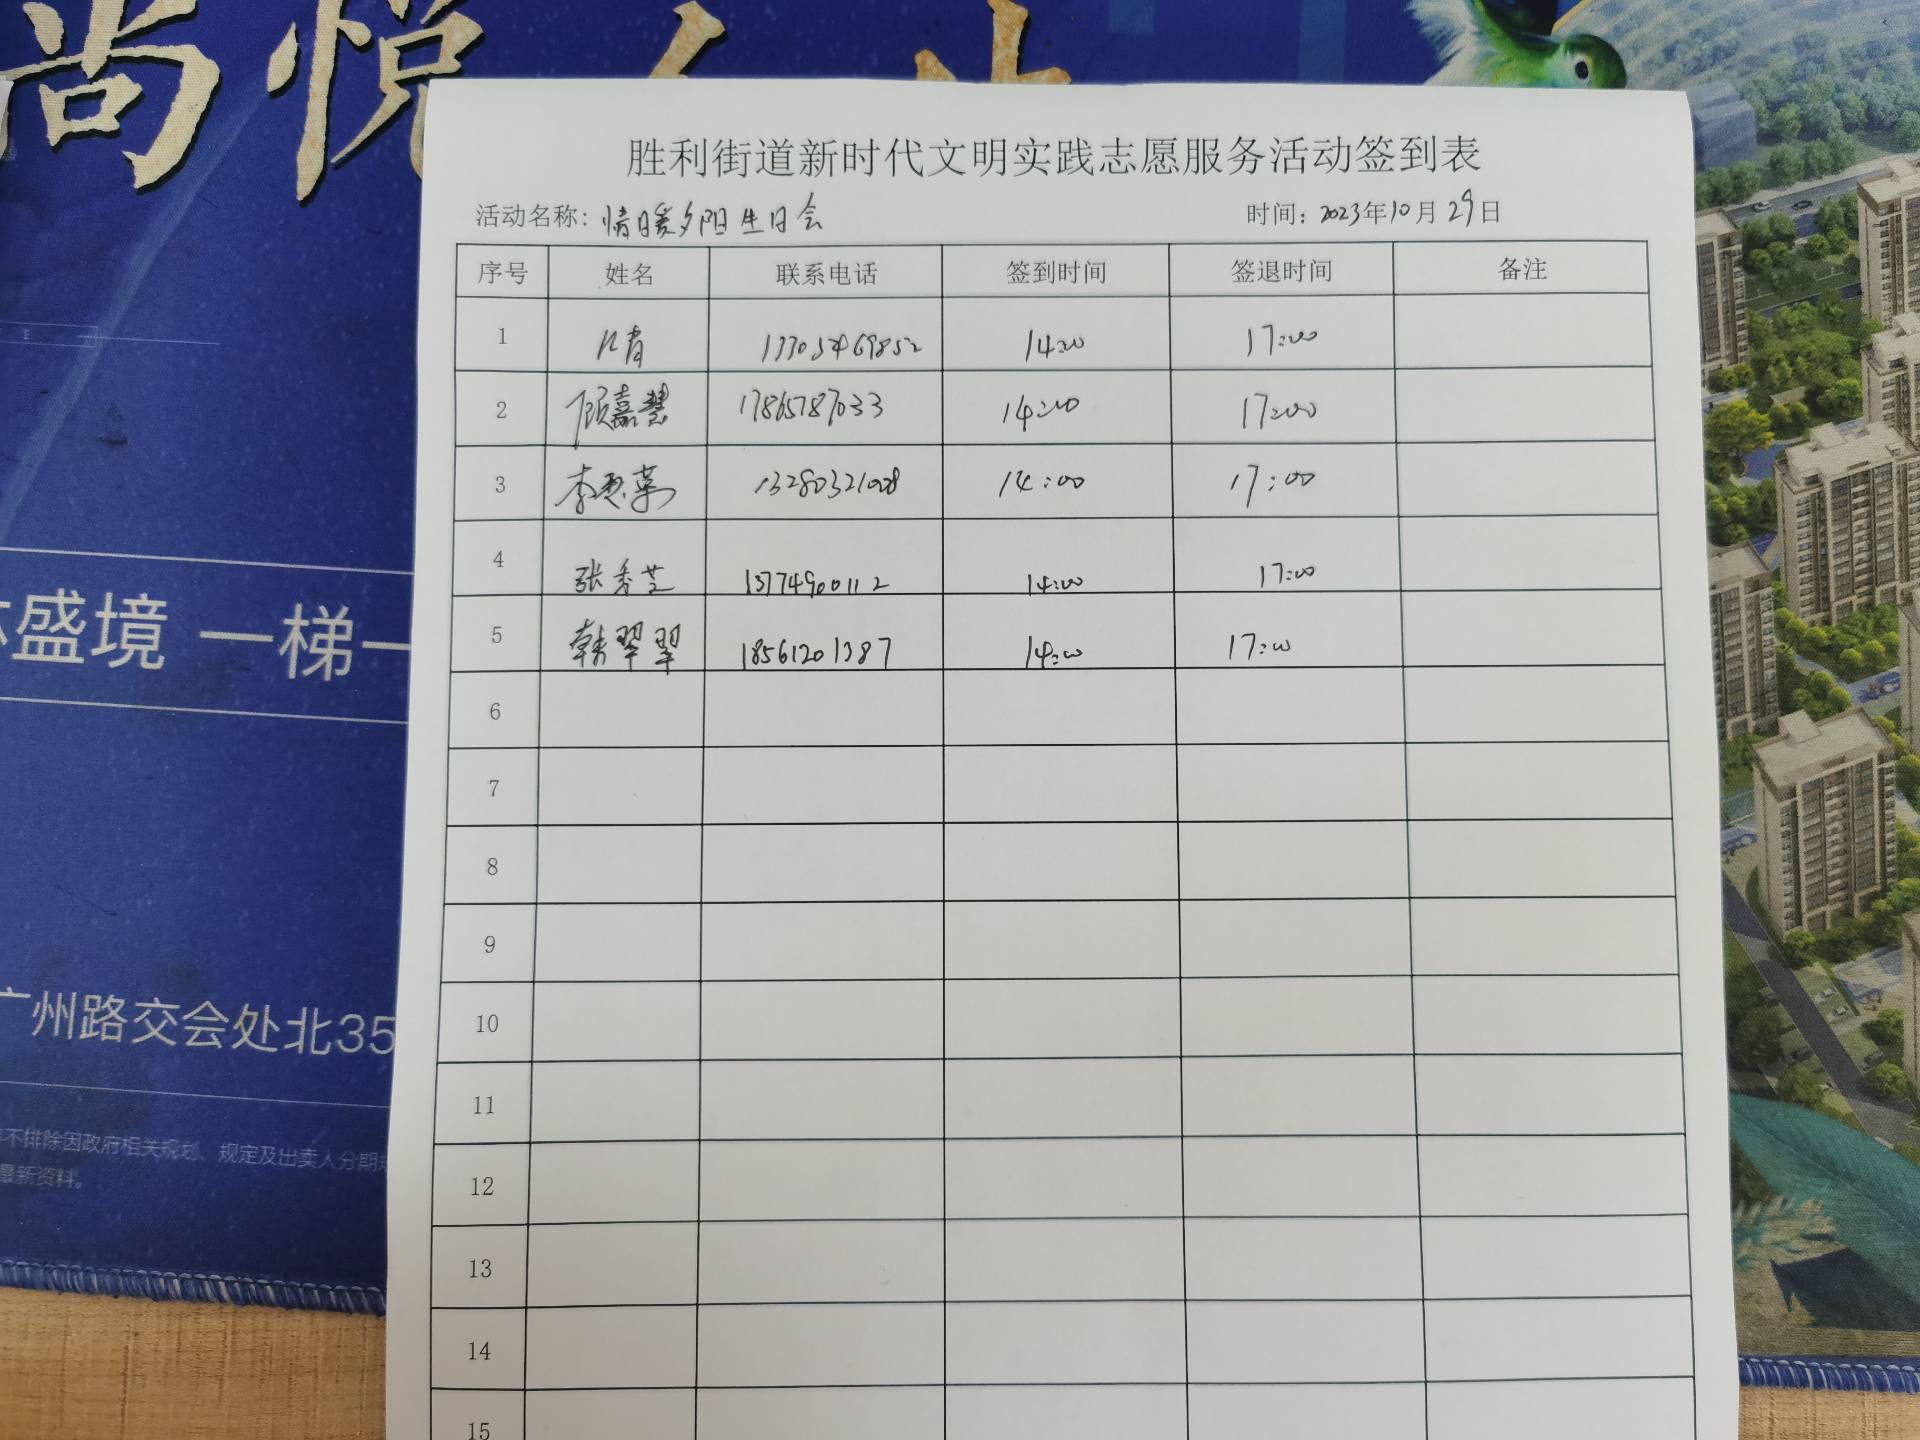 尚悦
胜利街道新时代文明实践志愿服务活动签到表
活动名称：情暖夕阳生日会 时间：2023年10月29日
序号 姓名 联系电话 签到时间 签退时间 备注
1 14:00 17:00
2 顾嘉慧 17865787033 14:00 17:00
3 14:00 17:00
4 张秀芝 13774900112 14:00 17:00
5 韩翠翠 18561201387 14:00 17:00
6
7
8
9
10
11
12
13
14
15
盛境 一梯一
广州路交会处北35
不排除因政府相关规划、规定及出卖人分期
最新资料。